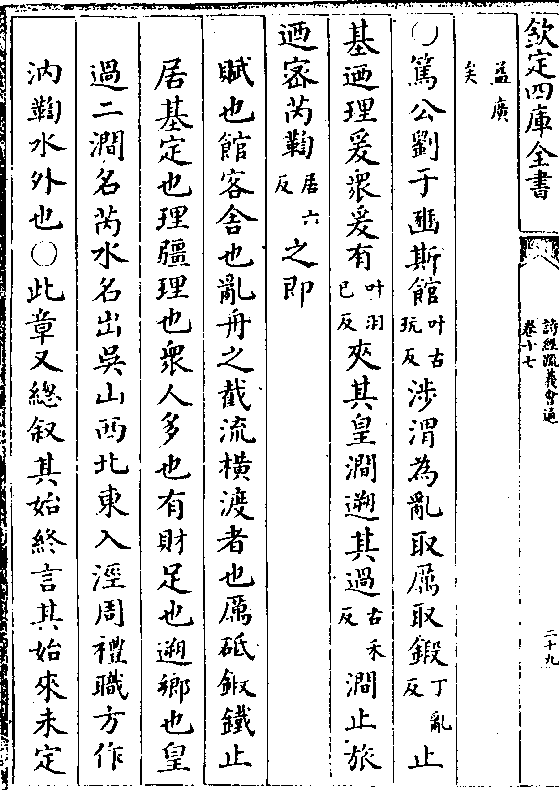 欽定四庫全書
詩經疏義會通
卷十七
二十九
益廣
矣
○篤公劉于豳斯館叶古玩反涉渭為亂取厲取鍛丁亂反止
基迺理爰眾爰有叶羽已反夾其皇澗遡其過古禾反澗止旅
迺密芮鞫居六反之即
賦也館客舍也亂舟之截流橫渡者也厲砥鍛鐵止
居基定也理疆理也眾人多也有財足也遡鄉也皇
過二澗名芮水名出吳山西北東入涇周禮職方作
汭鞫水外也○此章又總叙其始終言其始來未定